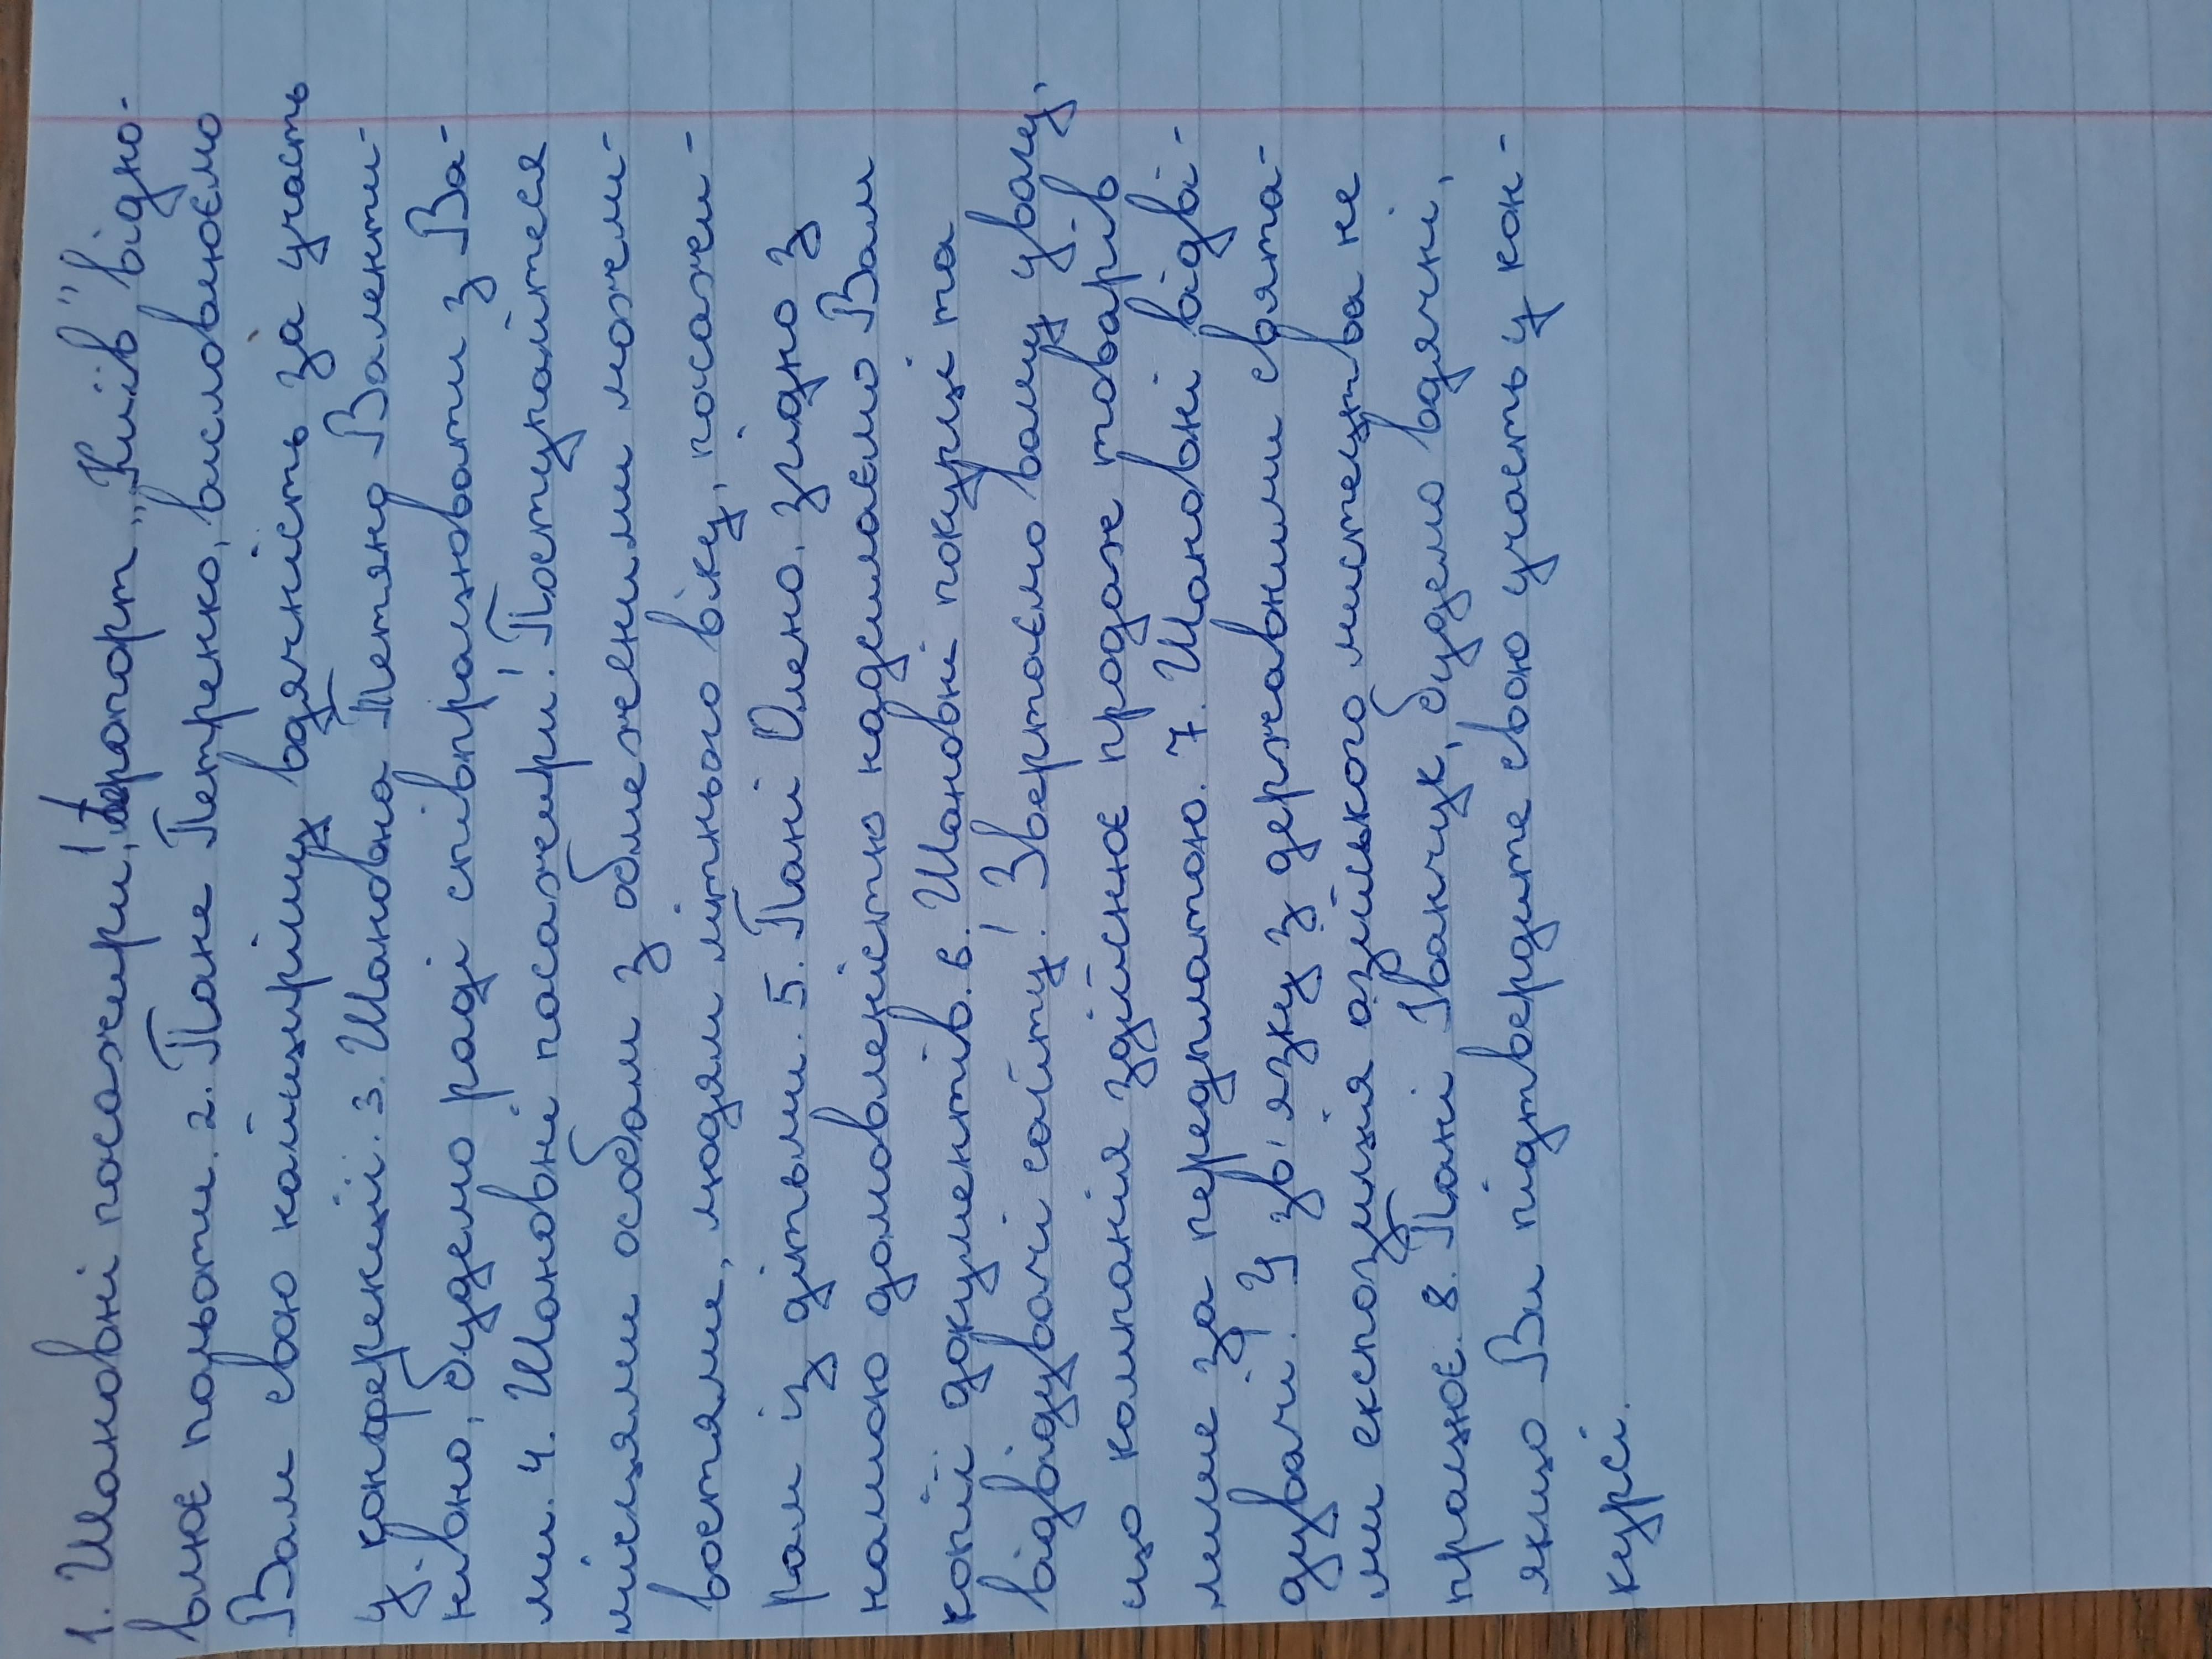 1. Шановні пасажири! Аеропорт „Київ" відно-
влює польоти. 2. Пане Петренко, висловлюємо
Вам свою найщирішу вдячність за участь
у конференції. 3. Шановна Тетяно Валенти-
нівно, будемо раді співпрацювати з Ва-
ми. 4. Шановні пасажири! Поступайтеся
місцями особам з обмеженими можли-
востями, людям літнього віку, пасажи-
рам із дітьми. 5. Пані Олено, згідно з
нашою домовленістю надсилаємо Вам
копії документів. 6. Шановні покупці та
відвідувачі сайту! Звертаємо вашу увагу,
що компанія здійснює продаж товарів
лише за передплатою. 7. Шановні відві-
дувачі! У зв'язку з державними свята-
ми експозиція азійського мистецтва не
працює. 8. Пані Іванчук, будемо вдячні,
якщо Ви підтвердите свою участь у кон-
курсі.